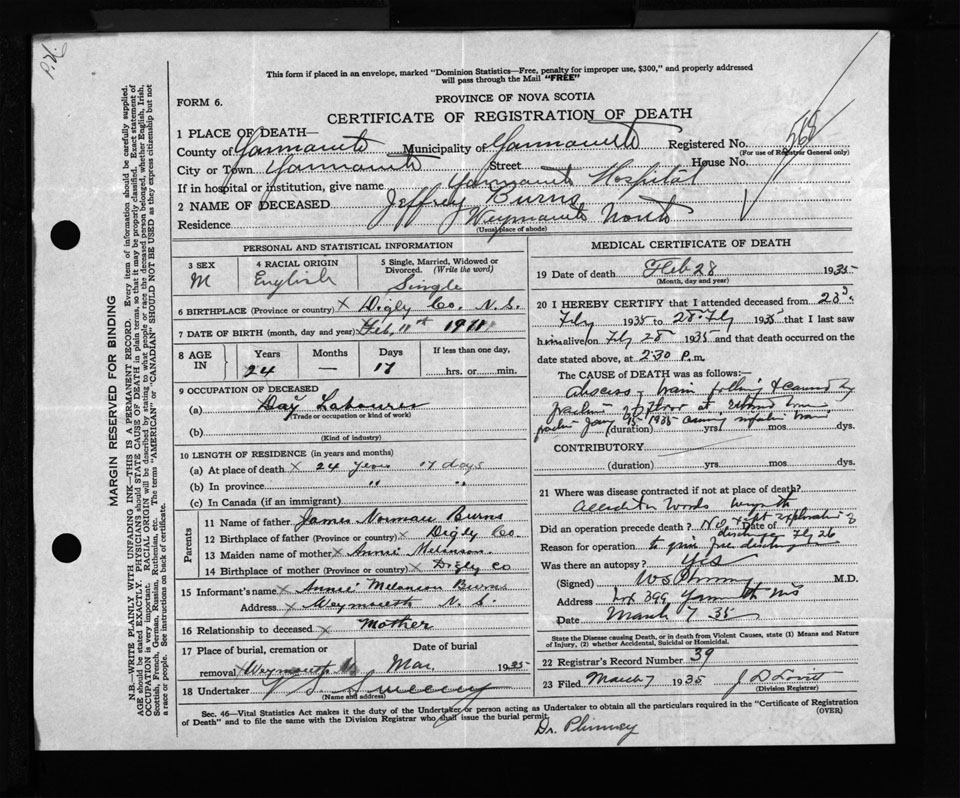 This form if placed in an envelope, marked "Dominion Statistics—Free, penalty for improper use, $300," and properly addressed
will pass through the Mail "FREE"
FORM 6.
PROVINCE OF NOVA SCOTIA
CERTIFICATE OF REGISTRATION OF DEATH
1 PLACE OF DEATH—
County of Yarmouth Municipality of Yarmouth Registered No. 562
(For use of Registrar General only)
City or Town Yarmouth Street House No.
If in hospital or institution, give name Yarmouth Hospital
2 NAME OF DECEASED Jeffrey Burns
Residence Weymouth North
(Usual place of abode)
MARGIN RESERVED FOR BINDING
N.B.—WRITE PLAINLY WITH UNFADING INK—THIS IS A PERMANENT RECORD. Every item of information should be carefully supplied.
AGE should be stated EXACTLY. PHYSICIANS should STATE CAUSE OF DEATH in plain terms, so that it may be properly classified. Exact statement of
OCCUPATION is very important. RACIAL ORIGIN will be described by stating to what people or race the deceased person belonged, whether English, Irish,
Scottish, French, German, Russian, Ruthenian, etc. The terms "AMERICAN" or "CANADIAN" SHOULD NOT BE USED as they express citizenship but not
a race or people. See instructions on back of certificate.
PERSONAL AND STATISTICAL INFORMATION
3 SEX
M
4 RACIAL ORIGIN
English
5 Single, Married, Widowed or
Divorced. (Write the word)
Single
6 BIRTHPLACE (Province or country) x Digby Co. N.S.
7 DATE OF BIRTH (month, day and year) Feb. 11th 1911
8 AGE IN
Years Months Days If less than one day,
24 — 17 hrs. or min.
9 OCCUPATION OF DECEASED
(a) Day Labourer
(Trade or occupation or kind of work)
(b)
(Kind of industry)
10 LENGTH OF RESIDENCE (in years and months)
(a) At place of death x 24 years 17 days
(b) In province " "
(c) In Canada (if an immigrant)
Parents
11 Name of father x James Norman Burns
12 Birthplace of father (Province or country) x Digby Co.
13 Maiden name of mother x Annie Melanson
14 Birthplace of mother (Province or country) x Digby Co
15 Informant's name x Annie Melanson Burns
Address x Weymouth N.S.
16 Relationship to deceased x Mother
17 Place of burial, cremation or Date of burial
removal Weymouth Mar. 1935
18 Undertaker Sweeny
(Name and address)
MEDICAL CERTIFICATE OF DEATH
19 Date of death Feb 28 1935
(Month, day and year)
20 I HEREBY CERTIFY that I attended deceased from 23
Feby 1935 to 28 Feby 1935 that I last saw
him alive on Feby 28 1935 and that death occurred on
date stated above, at 2:30 P.m.
The CAUSE OF DEATH was as follows:—
abscess brain following & caused by
1935
(duration) yrs. mos. dys.
CONTRIBUTORY
(duration) yrs. mos. dys.
21 Where was disease contracted if not at place of death?
Accident in Woods
Did an operation precede death? No Date of
Feby 26
Reason for operation to give free discharge
Was there an autopsy? Yes
(Signed) W S Phinney M.D.
Address box 399 Yarmouth NS
Date March 7 35
State the Disease causing Death, or in death from Violent Causes, state (1) Means and Nature
of Injury, (2) whether Accidental, Suicidal or Homicidal.
22 Registrar's Record Number 39
23 Filed March 7 1935 J D Lovitt
(Division Registrar)
Sec. 46—Vital Statistics Act makes it the duty of the Undertaker or person acting as Undertaker to obtain all the particulars required in the "Certificate of Registration
of Death" and to file the same with the Division Registrar who shall issue the burial permit. (OVER)
Dr. Phinney